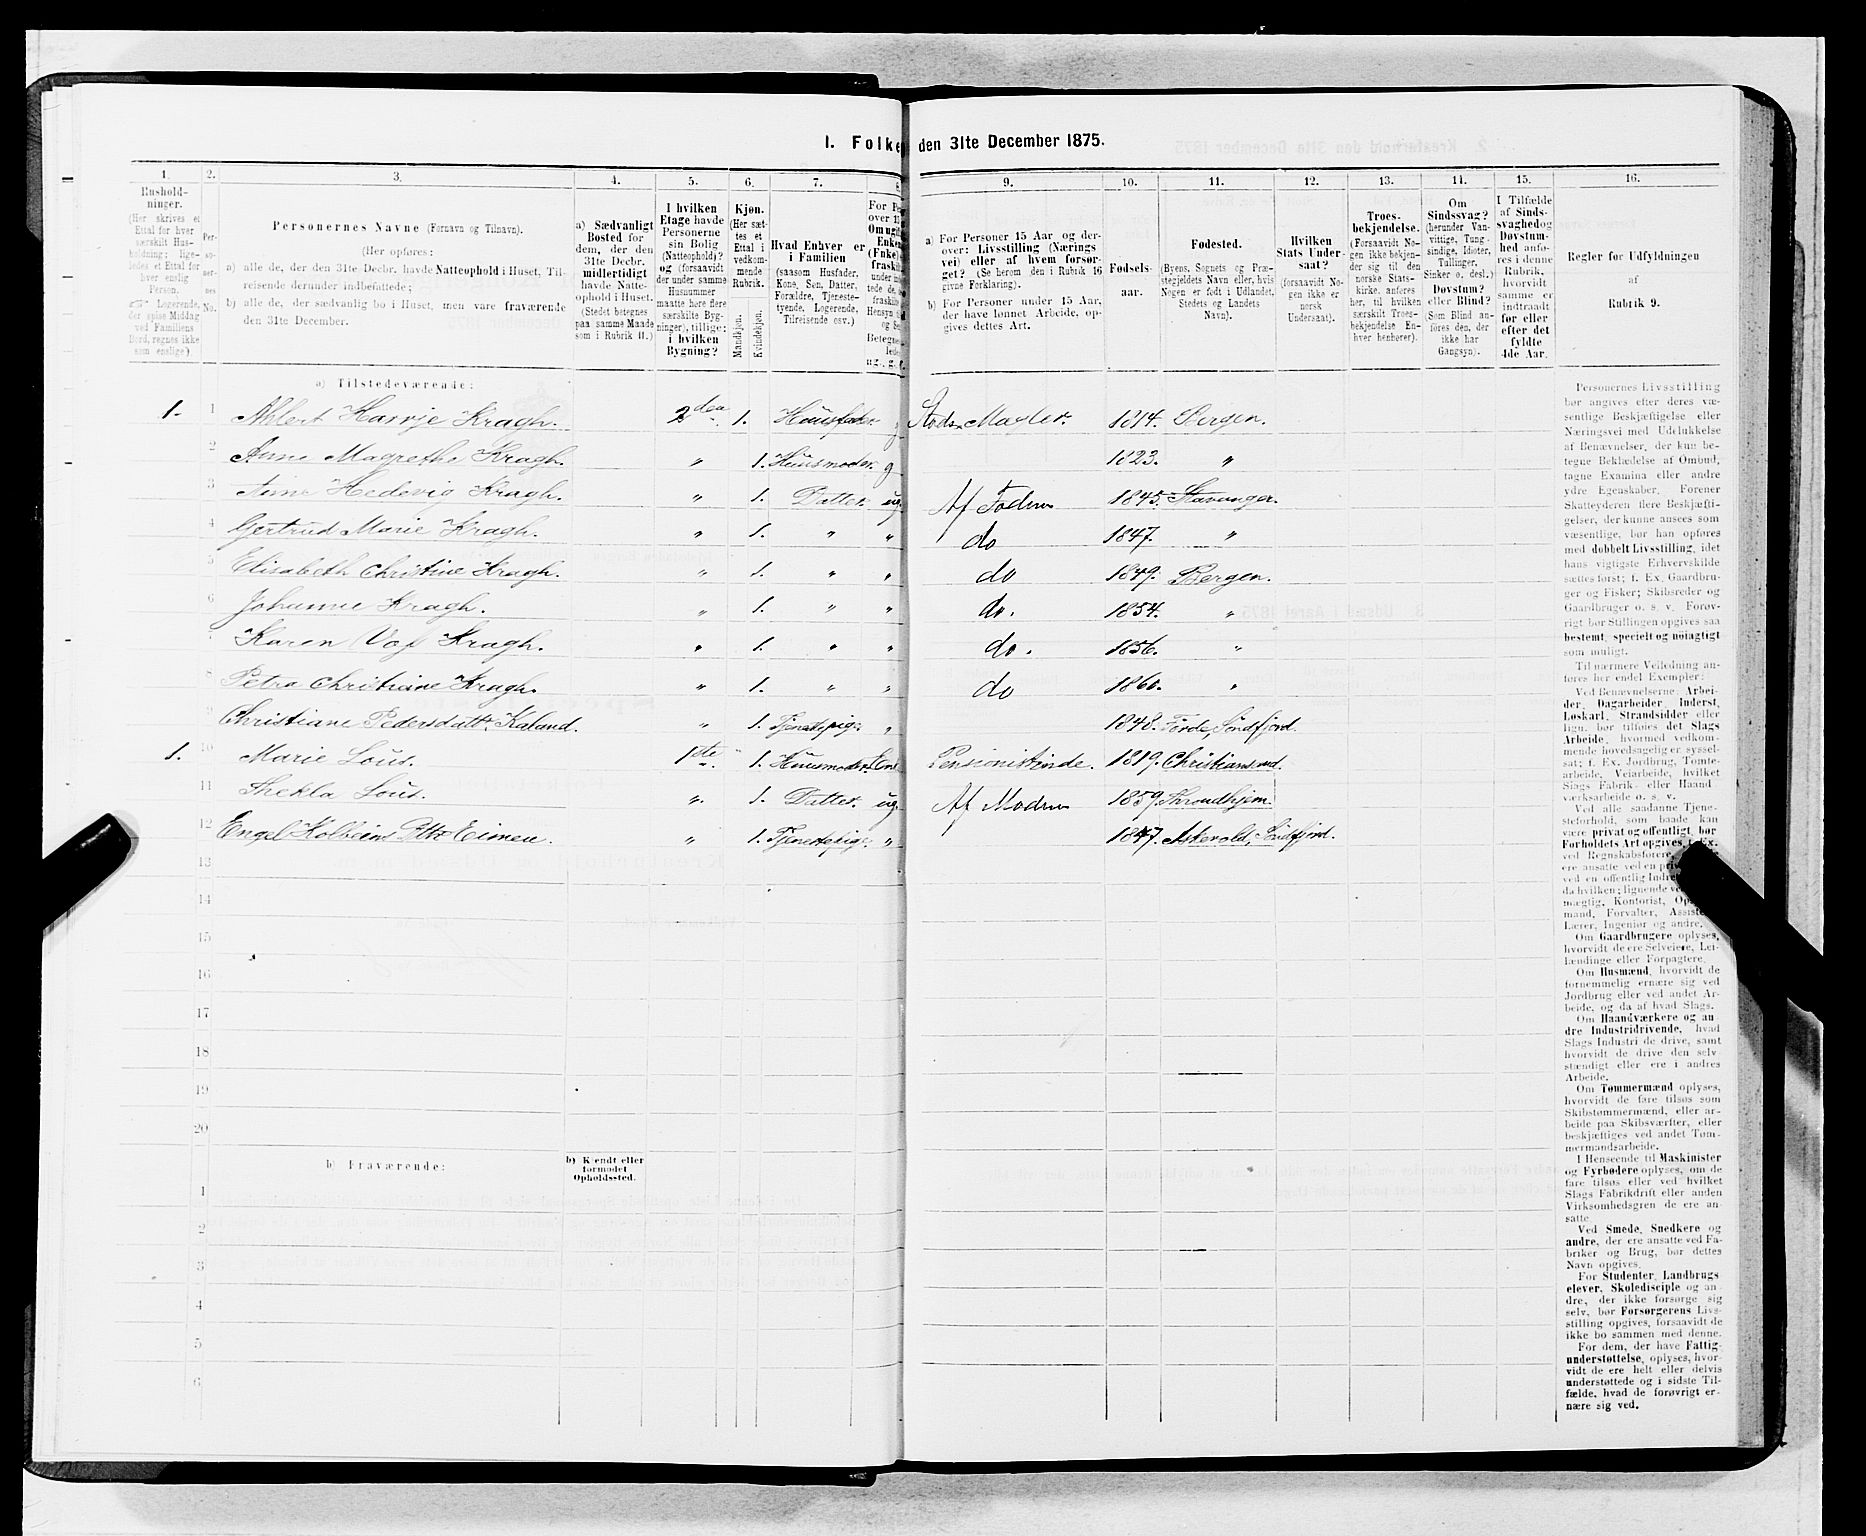 1. Folke den 31te December 1875.
1. 2. 3. 4. 5. 6. 7. 8. 9. 10. 11. 12. 13. 14. 15. 16.
Hushold-
ninger.
(Her skrives et
Ettal for hver
særskilt Hus-
holdning; lige-
ledes et Ettal for
hver enslig
Person.
Logerende,
der spise Middag
ved Familiens
Bord, regnes ikke
som enslige.)
Per-
so-
ner-
nes
No.
Personernes Navne (Fornavn og Tilnavn).
(Her opføres:
a) alle de, der den 31te Decbr. havde Natteophold i Huset, Til-
reisende derunder indbefattede;
b) alle de, der sædvanlig bo i Huset, men vare fraværende
den 31te December.
a) Sædvanligt
Bosted for
dem, der den
31te Decbr.
midlertidigt
havde Natte-
ophold i Huset.
(Stedet betegnes
paa samme Maade
som i Rubrik 11.)
I hvilken
Etage havde
Personerne
sin Bolig
(Natteophold)?
og (forsaavidt
der under samme
Husnummer
maatte høre flere
særskilte Byg-
ninger), tillige:
i hvilken
Bygning?
Kjøn.
(Her sæt-
tes et
Ettal i
vedkom-
mende
Rubrik.
Mandkjøn.
Kvindekjøn.
Hvad Enhver er
i Familien
(saasom Husfader,
Kone, Søn, Datter,
Forældre, Tjeneste-
tyende, Logerende,
Tilreisende osv.)
a) For Personer 15 Aar og der-
over: Livsstilling (Nærings
vei) eller af hvem forsør-
get? (Se herom den i Rubrik 16
givne Forklaring).
b) For Personer under 15 Aar,
der have lønnet Arbeide, op-
gives dettes Art.
Fødsels-
aar.
Fødested.
(Byens, Sognets og Præ-
stegjeldets Navn eller, hvis
Nogen er født i Udlandet,
Stedets og Landets
Navn).
Hvilken
Stats Under-
saat?
(forsaavidt No-
gen ikke er
norsk
Undersaat).
Troes-
bekjendelse.
(Forsaavidt No-
gen ikke bekjen-
der sig til den
norske Stats-
kirke, anføres
her, til hvilken
særskilt Troes-
bekjendelse En-
hver henhører).
Om
Sindssvag?
(herunder Van-
vittige, Tung-
sindige, Idioter,
Tullinger,
Sinker o. desl.)
Døvstum?
eller Blind?
(Som Blind an-
føres den, der
ikke har
Gangsyn).
I Tilfælde
af Sinds-
svaghed og
Døvstum-
hed anfø-
res i denne
Rubrik,
hvorvidt
samme er
indtraadt
før eller
efter det
fyldte
4de Aar.
Regler for Udfyldningen
af
Rubrik 9.
a) Tilstedeværende:
1. 1 Ahlert Harvje Kragh. 2den 1. Huusfader g Stads Mægler. 1814. Bergen.
2 Anne Magrethe Kragh. " 1. Huusmoder. g 1823. "
3 Anne Hedevig Kragh. " 1. Datter. ug. Af Faderen 1845. Stavanger.
4 Gertrud Marie Kragh. " 1. " " do 1847. "
5 Elisabeth Christine Kragh. " 1. " " do 1849. Bergen.
6 Johanne Kragh. " 1. " " do. 1854. "
7 Karen Vos Kragh. " 1. " " do. 1856. "
8 Petra Christiane Kragh. " 1. " " do 1860. "
9 Christiane Pedersdattr Kaland. " 1. Tjenestepige " 1848. Førde, Søndfjord.
1. 10 Marie Lous. 1ste 1. Huusmoder. Enke Pensionistinde. 1819. Christiansand.
11 Thekla Lous. " 1. Datter. ug. Af Moderen 1859. Throndhjem.
12 Engel Kolbeins Dttr Eimen. " 1. Tjenestepige " 1847. Askevold, Søndfjord.
13
14
15
16
17
18
19
20
b) Fraværende: b) Kjendt eller
formodet
Opholdssted.
1
2
3
4
5
6
Personernes Livsstilling
bør angives efter deres væ-
sentlige Beskjæftigelse eller
Næringsvei med Udelukkelse
af Benævnelser, der kun be-
tegne Beklædelse af Ombud,
tagne Examina eller andre
ydre Egenskaber. Forener
Skatteyderen flere Beskjæfti-
gelser, der kunne ansees som
væsentlige, bør han opføres
med dobbelt Livsstilling, idet
hans vigtigste Erhvervskilde
sættes først; f. Ex. Gaardbru-
ger og Fisker; Skibsreder og
Gaardbruger o. s. v. Forøv-
rigt bør Stillingen opgives saa
bestemt, specielt og nøiagtigt
som muligt.
Til nærmere Veiledning an-
føres her endel Exempler:
Ved Benævnelserne: Arbei-
der, Dagarbeider, Inderst,
Løskarl, Strandsidder eller
lign. bør tilføies det Slags
Arbeide, hvormed vedkom-
mende hovedsagelig er syssel-
sat; f. Ex. Jordbrug, Tømte-
arbeide, Veiarbeide, hvilket
Slags Fabrik- eller Haand-
værksarbeide o. s. v.
Ved alle saadanne Tjene-
steforhold, som baade kan
være privat og offentligt, bør
Forholdets Art opgives, f. Ex.
ved Regnskabsførere,
ere ansatte ved en
ved en offentlig
da hvilken; lignende
mægtig, Kontorist,
mand, Forvalter,
Lærer, Ingeniør og andre.
Om Gaardbrugere oplyses,
hvorvidt de ere Selveiere, Lei-
lændinge eller Forpagtere.
Om Husmænd, hvorvidt de
fornemmelig ernære sig ved
Jordbrug eller ved andet Ar-
beide, og da af hvad Slags.
Om Haandværkere og an-
dre Industridrivende, hvad
Slags Industri de drive, samt
hvorvidt de drive den selv-
stændigt eller ere i andres
Arbeide.
Om Tømmermænd oplyses,
hvorvidt de fare tilsøs som
Skibstømmermænd, eller ar-
beide paa Skibsværfter, eller
beskjæftiges ved andet Tøm-
mermandsarbeide.
I Henseende til Maskinister
og Fyrbødere oplyses, om de
fare tilsøs eller ved hvilket
Slags Fabrikdrift eller anden
Virksomhedsgren de ere an-
satte.
Ved Smede, Snedkere og
andre, der ere ansatte ved Fa-
briker og Brug, bør dettes
Navn opgives.
For Studenter, Landbrugs
elever, Skoledisciple og an-
dre, der ikke forsørge sig
selv, bør Forsørgerens Livs-
stilling opgives, forsaavidt de
ikke bo sammen med denne.
For dem, der have Fattig-
understøttelse, oplyses, hvor-
vidt de ere helt eller delvis
understøttede og i sidste Til-
fælde, hvad de forøvrigt er-
nære sig ved.